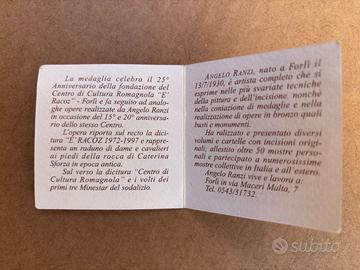 La medaglia celebra il 25°
Anniversario della fondazione del
Centro di Cultura Romagnola "E'
Racoz" - Forlì e fa seguito ad analo-
ghe opere realizzate da Angelo Ranzi
in occasione del 15° e 20° anniversa-
rio dello stesso Centro.
L'opera riporta sul recto la dicitu-
ra "E' RACOZ 1972-1997 e rappre-
senta un raduno di dame e cavalieri
ai piedi della rocca di Caterina
Sforza in epoca antica.
Sul verso la dicitura "Centro di
Cultura Romagnola" e i volti dei
primi tre Minestar del sodalizio.
ANGELO RANZI, nato a Forlì il
13/7/1930, è artista completo che si
esprime nelle più svariate tecniche
della pittura e dell'incisione, nonché
nella coniazione di medaglie e nella
realizzazione di opere in bronzo quali
busti e monumenti.
Ha ralizzato e presentato diversi
volumi e cartelle con incisioni origi-
nali; allestito oltre 50 mostre perso-
nali e partecipato a numerosissime
mostre collettive in Italia e all'estero.
Angelo Ranzi vive e lavora a:
Forlì in via Maceri Malta, 7
Tel. 0543/31732.
subito